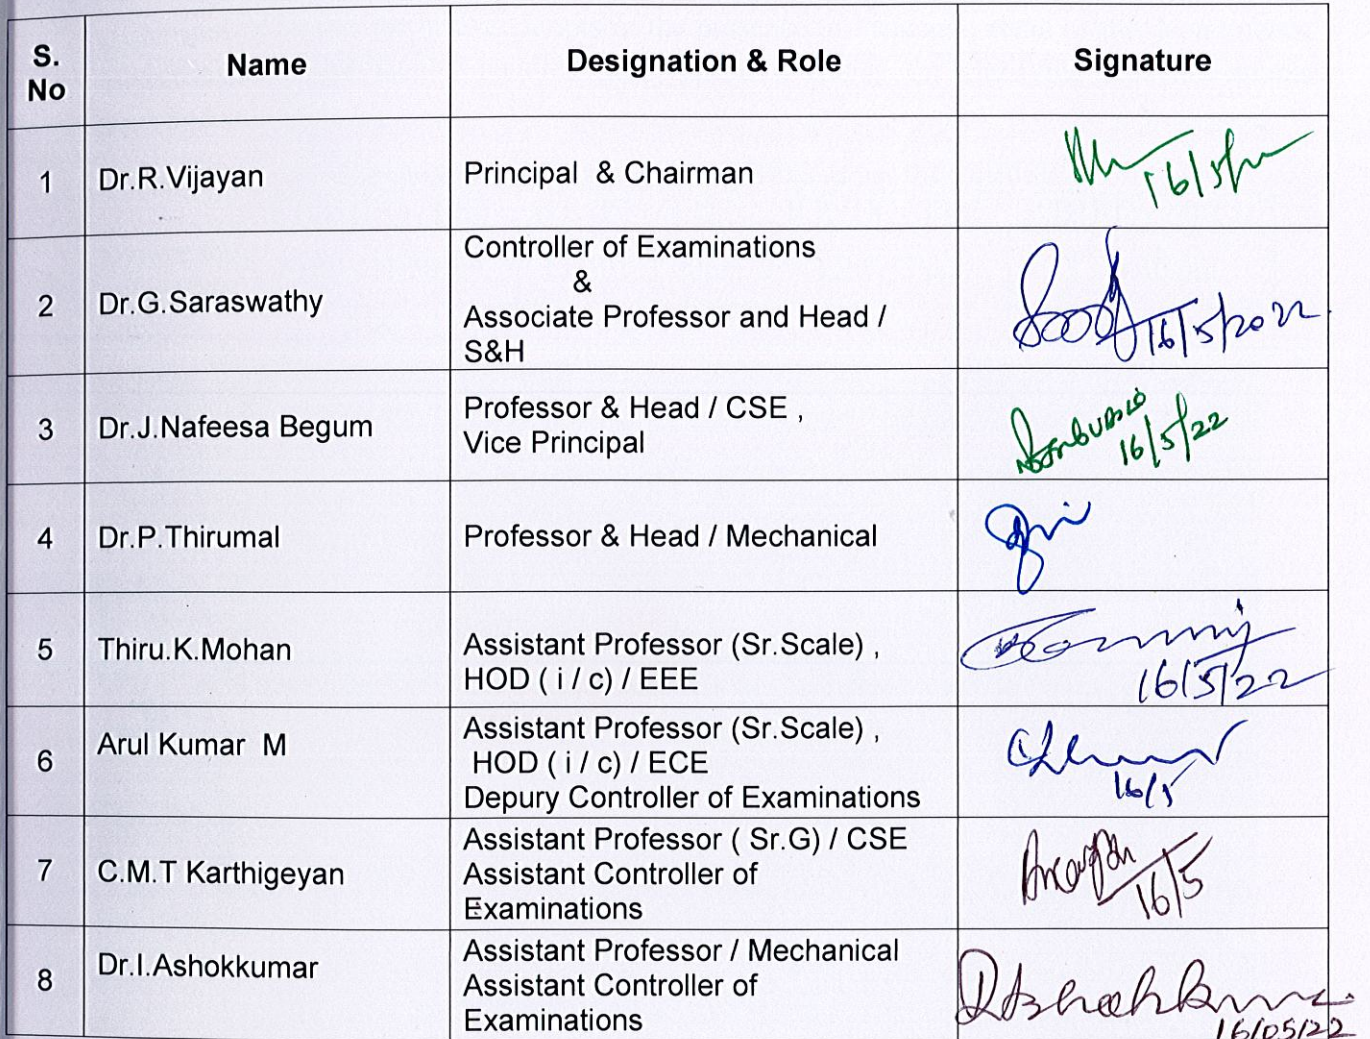 S. No Name Designation & Role Signature
1 Dr.R.Vijayan Principal & Chairman 16/5/22
2 Dr.G.Saraswathy Controller of Examinations
&
Associate Professor and Head /
S&H
16/5/2022
3 Dr.J.Nafeesa Begum Professor & Head / CSE ,
Vice Principal
16/5/22
4 Dr.P.Thirumal Professor & Head / Mechanical
5 Thiru.K.Mohan Assistant Professor (Sr.Scale) ,
HOD ( i / c) / EEE
16/5/22
6 Arul Kumar M Assistant Professor (Sr.Scale) ,
HOD ( i / c) / ECE
Depury Controller of Examinations
16/5
7 C.M.T Karthigeyan Assistant Professor ( Sr.G) / CSE
Assistant Controller of
Examinations
16/5
8 Dr.I.Ashokkumar Assistant Professor / Mechanical
Assistant Controller of
Examinations
16/05/22